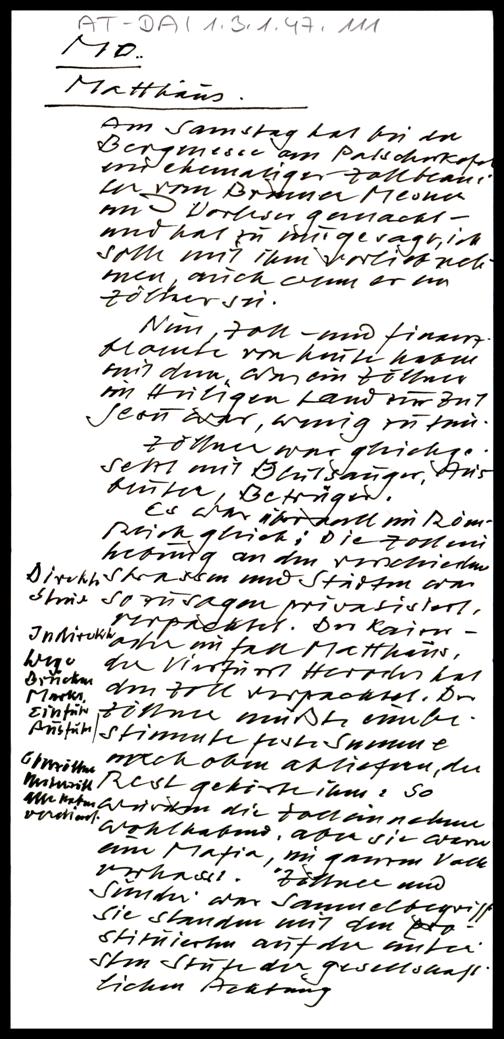 AT-DAI 1.3.1.47. 111
MO.
Matthäus.
Am Samstag hat bei der
Bergmesse am Patscherkofel
ein ehemaliger Zollbeam-
ter vom Brenner Mesner
und Vorleser gemacht -
und hat zu mir gesagt, ich
solle mit ihm vorlieb neh-
men, auch wenn er ein
Zöllner sei.
Nun, Zoll- und Finanz-
beamte von heute haben
mit dem, was ein Zöllner
im Heiligen Land zur Zeit
Jesu war, wenig zu tun.
Zöllner war gleichge-
setzt mit Blutsauger, Aus-
beuter, Betrüger.
Es war überall im Röm.
Reich gleich: Die Zollein
hebung an den verschieden
Strassen und Städten war
sozusagen privatisiert,
verpachtet. Der Kaiser -
oder im Fall Matthäus,
der Vierfürst Herodes hat
den Zoll verpachtet. Der
Zöllner mußte eine be-
stimmte feste Summe
nach oben abliefern, der
Rest gehörte ihm: So
wurden die Zolleinnehmer
wohlhabend, aber sie waren
eine Mafia, im ganzen Volk
verhasst. "Zöllner und
Sünder" war Sammelbegriff
Sie standen mit den Pro-
stituierten auf der unter
sten Stufe der gesellschaft-
lichen Achtung
Direkte
Steuer
Indirekte
Wege
Brücken
Markt
Einfuhr
Ausfuhr